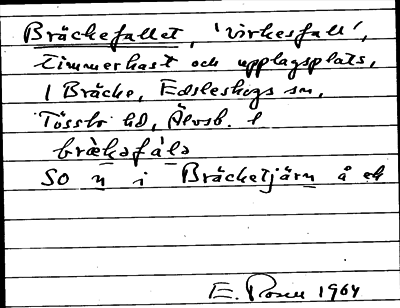 Bräckefallet, 'virkesfall',
timmerkast och upplagsplats,
1 Bräcke, Edsleskogs sn,
Tössbo hd, Älvsb. l
bræ̀kəfàlə
SO n i Bräcketjärn å ek
E. Rosen 1964